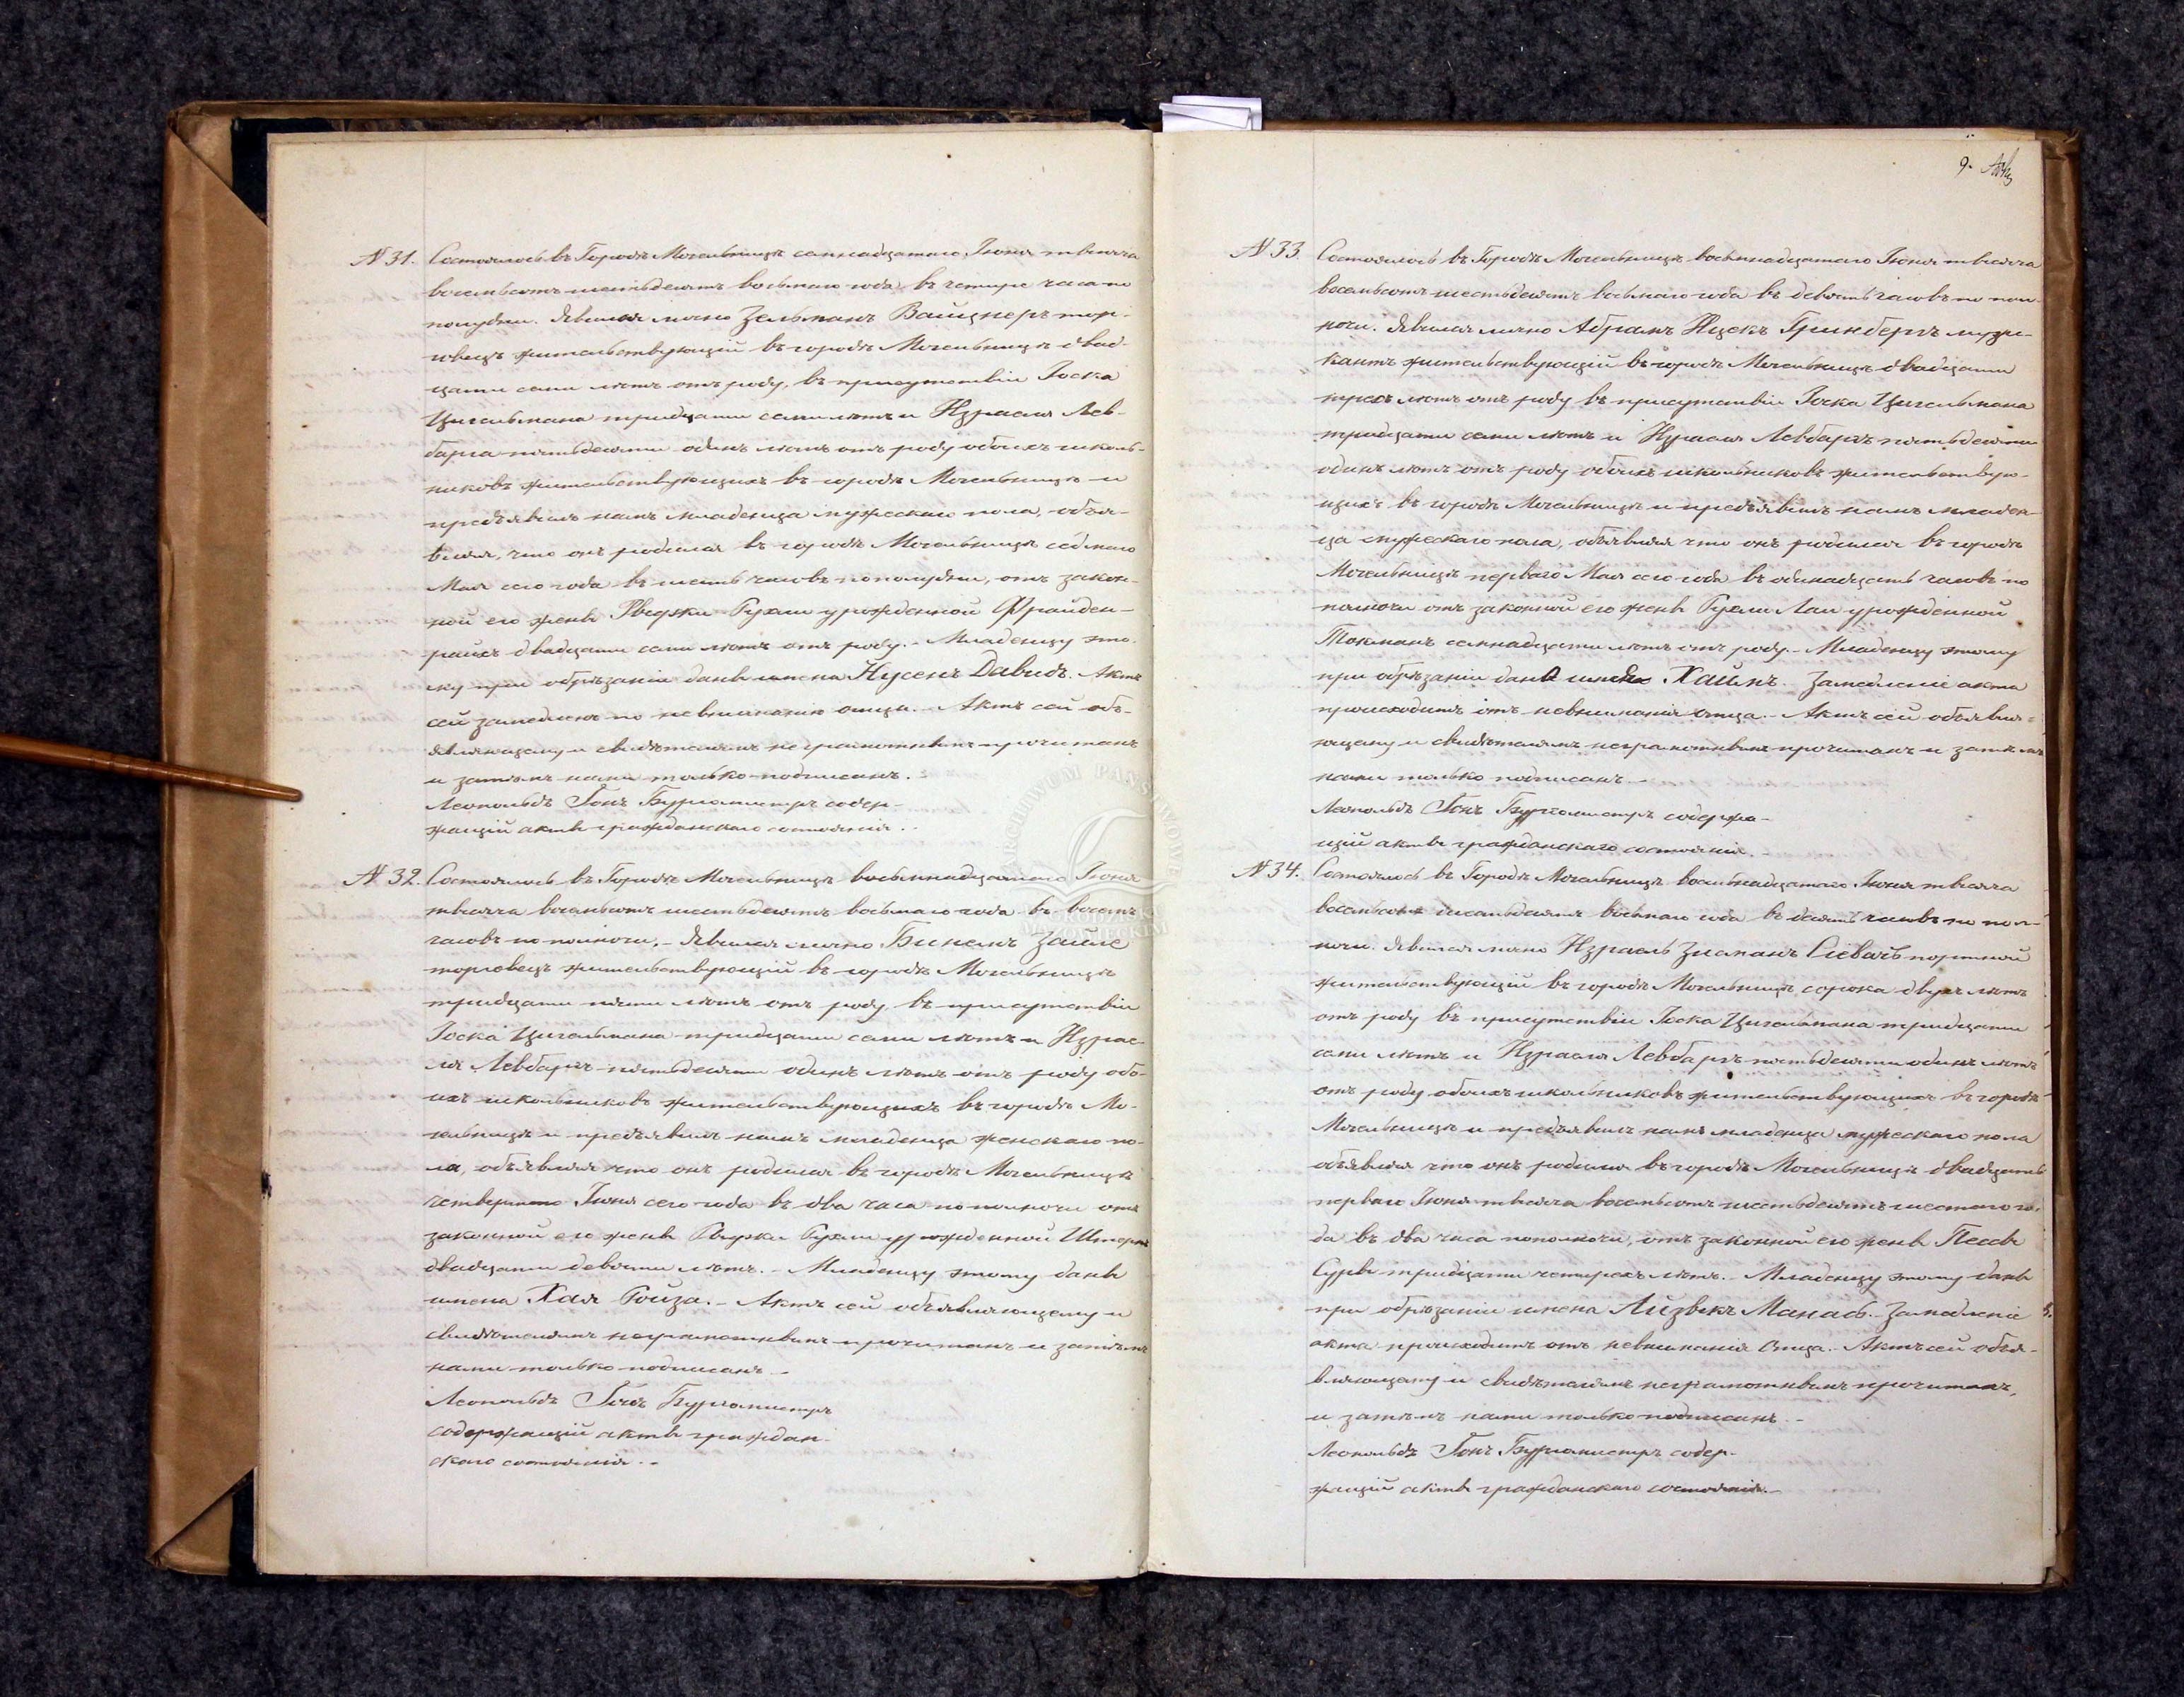 9.
N 31. Состоялось въ Городѣ Могельницѣ семнадцатаго Іюня тысяча
восемьсотъ шестьдесятъ восьмаго года въ четыре часа по
полудни. Явился лично Зельманъ Вайцнеръ тор-
говецъ жительствующій въ городѣ Могельницѣ двад-
цати семи лѣтъ отъ роду, въ присутствіи Іоска
Цигельмана тридцати семи лѣтъ и Израеля Лев-
барга пятьдесяти одинъ лѣтъ отъ роду обоихъ школь-
никовъ жительствующихъ въ городѣ Могельницѣ и
предъявилъ намъ младенца мужескаго пола, объя-
вляя, что онъ родился въ городѣ Могельницѣ седмаго
Мая сего года въ шесть часовъ пополудни, отъ закон-
ной его жены Рывки Рухли урожденной Фрайден-
райхъ двадцати семи лѣтъ отъ роду. - Младенцу это-
му при обрѣзаніи даны имена Нусенъ Давидъ. Актъ
сей замедленъ по невниманію отца. - Актъ сей объ-
являющему и свидѣтелямъ неграмотнымъ прочитанъ
и затѣмъ нами только подписанъ.
Леопольдъ Гонъ Бургомистръ содер-
жащій акты гражданскаго состоянія.
N 32. Состоялось въ Городѣ Могельницѣ восьмнадцатаго Іюня
тысяча восемьсотъ шестьдесятъ восьмаго года въ восемь
часовъ по полночи, - Явился лично Бинемъ Зайде
торговецъ жительствующій въ городѣ Могельницѣ
тридцати пяти лѣтъ отъ роду, въ присутствіи
Іоска Цигельмана тридцати семи лѣтъ и Израе-
ля Левбаргъ пятьдесяти одинъ лѣтъ отъ роду обо-
ихъ школьниковъ жительствующихъ въ городѣ Мо-
гельницѣ и предъявилъ намъ младенца женскаго по-
ла, объявляя что онъ родился въ городѣ Могельницѣ
четвертаго Іюня сего года въ два часа по полночи отъ
законной его жены Рывки Рухли урожденной Штернъ
двадцати девяти лѣтъ. - Младенцу этому даны
имена Хая Ройза. - Актъ сей объявляющему и
свидѣтелямъ неграмотнымъ прочитанъ и затѣмъ
нами только подписанъ. -
Леопольдъ Гонъ Бургомистръ
содержащій акты граждан-
скаго состоянія. -
N 33. Состоялось въ Городѣ Могельницѣ восьмнадцатаго Іюня тысяча
восемьсотъ шестьдесятъ восьмаго года въ девять часовъ по пол-
ночи. Явился лично Абрамъ Ицекъ Гринбергъ музы-
кантъ жительствующій въ городѣ Могельницѣ двадцати
трехъ лѣтъ отъ роду въ присутствіи Іоска Цигельмана
тридцати семи лѣтъ и Израеля Левбаргъ пятьдесяти
одинъ лѣтъ отъ роду обоихъ школьниковъ жительствую-
щихъ въ городѣ Могельницѣ и предъявилъ намъ младен-
ца мужескаго пола, объявляя что онъ родился въ городѣ
Могельницѣ перваго Мая сего года въ одинадцать часовъ по
полночи отъ законной его жены Рухли Лаи урожденной
Токманъ семнадцати лѣтъ отъ роду. - Младенцу этому
при обрѣзаніи дано имя Хаимъ. Замедленіе акта
происходитъ отъ невниманія отца. - Актъ сей объявля-
ющему и свидѣтелямъ неграмотнымъ прочитанъ и затѣмъ
нами только подписанъ. -
Леопольдъ Гонъ Бургомистръ содержа-
щій акты гражданскаго состоянія. -
N 34. Состоялось въ Городѣ Могельницѣ восьмнадцатаго Іюня тысяча
восемьсотъ шестьдесятъ восьмаго года въ десять часовъ по пол-
ночи. Явился лично Израель Зелманъ портной
жительствующій въ городѣ Могельницѣ, сорока двухъ лѣтъ
отъ роду въ присутствіи Іоска Цигельмана тридцати
семи лѣтъ и Израеля Левбаргъ пятьдесяти одинъ лѣтъ
отъ роду обоихъ школьниковъ жительствующихъ въ городѣ
Могельницѣ и предъявилъ намъ младенца мужескаго пола
объявляя что онъ родился въ городѣ Могельницѣ двадцать
перваго Іюня тысяча восемьсотъ шестьдесятъ шестаго го-
да въ два часа пополночи, отъ законной его жены Песы
Суры тридцати четырехъ лѣтъ. - Младенцу этому даны
при обрѣзаніи имена Айзыкъ Манасъ. - Замедленіе
акта происходитъ отъ невниманія Отца. - Актъ сей объя-
вляющему и свидѣтелямъ неграмотнымъ прочитанъ,
и затѣмъ нами только подписанъ. -
Леопольдъ Гонъ Бургомистръ содер-
жащій акты гражданскаго состоянія. -
ARCHIWUM PAŃSTWOWE
W GRODZISKU
MAZOWIECKIM